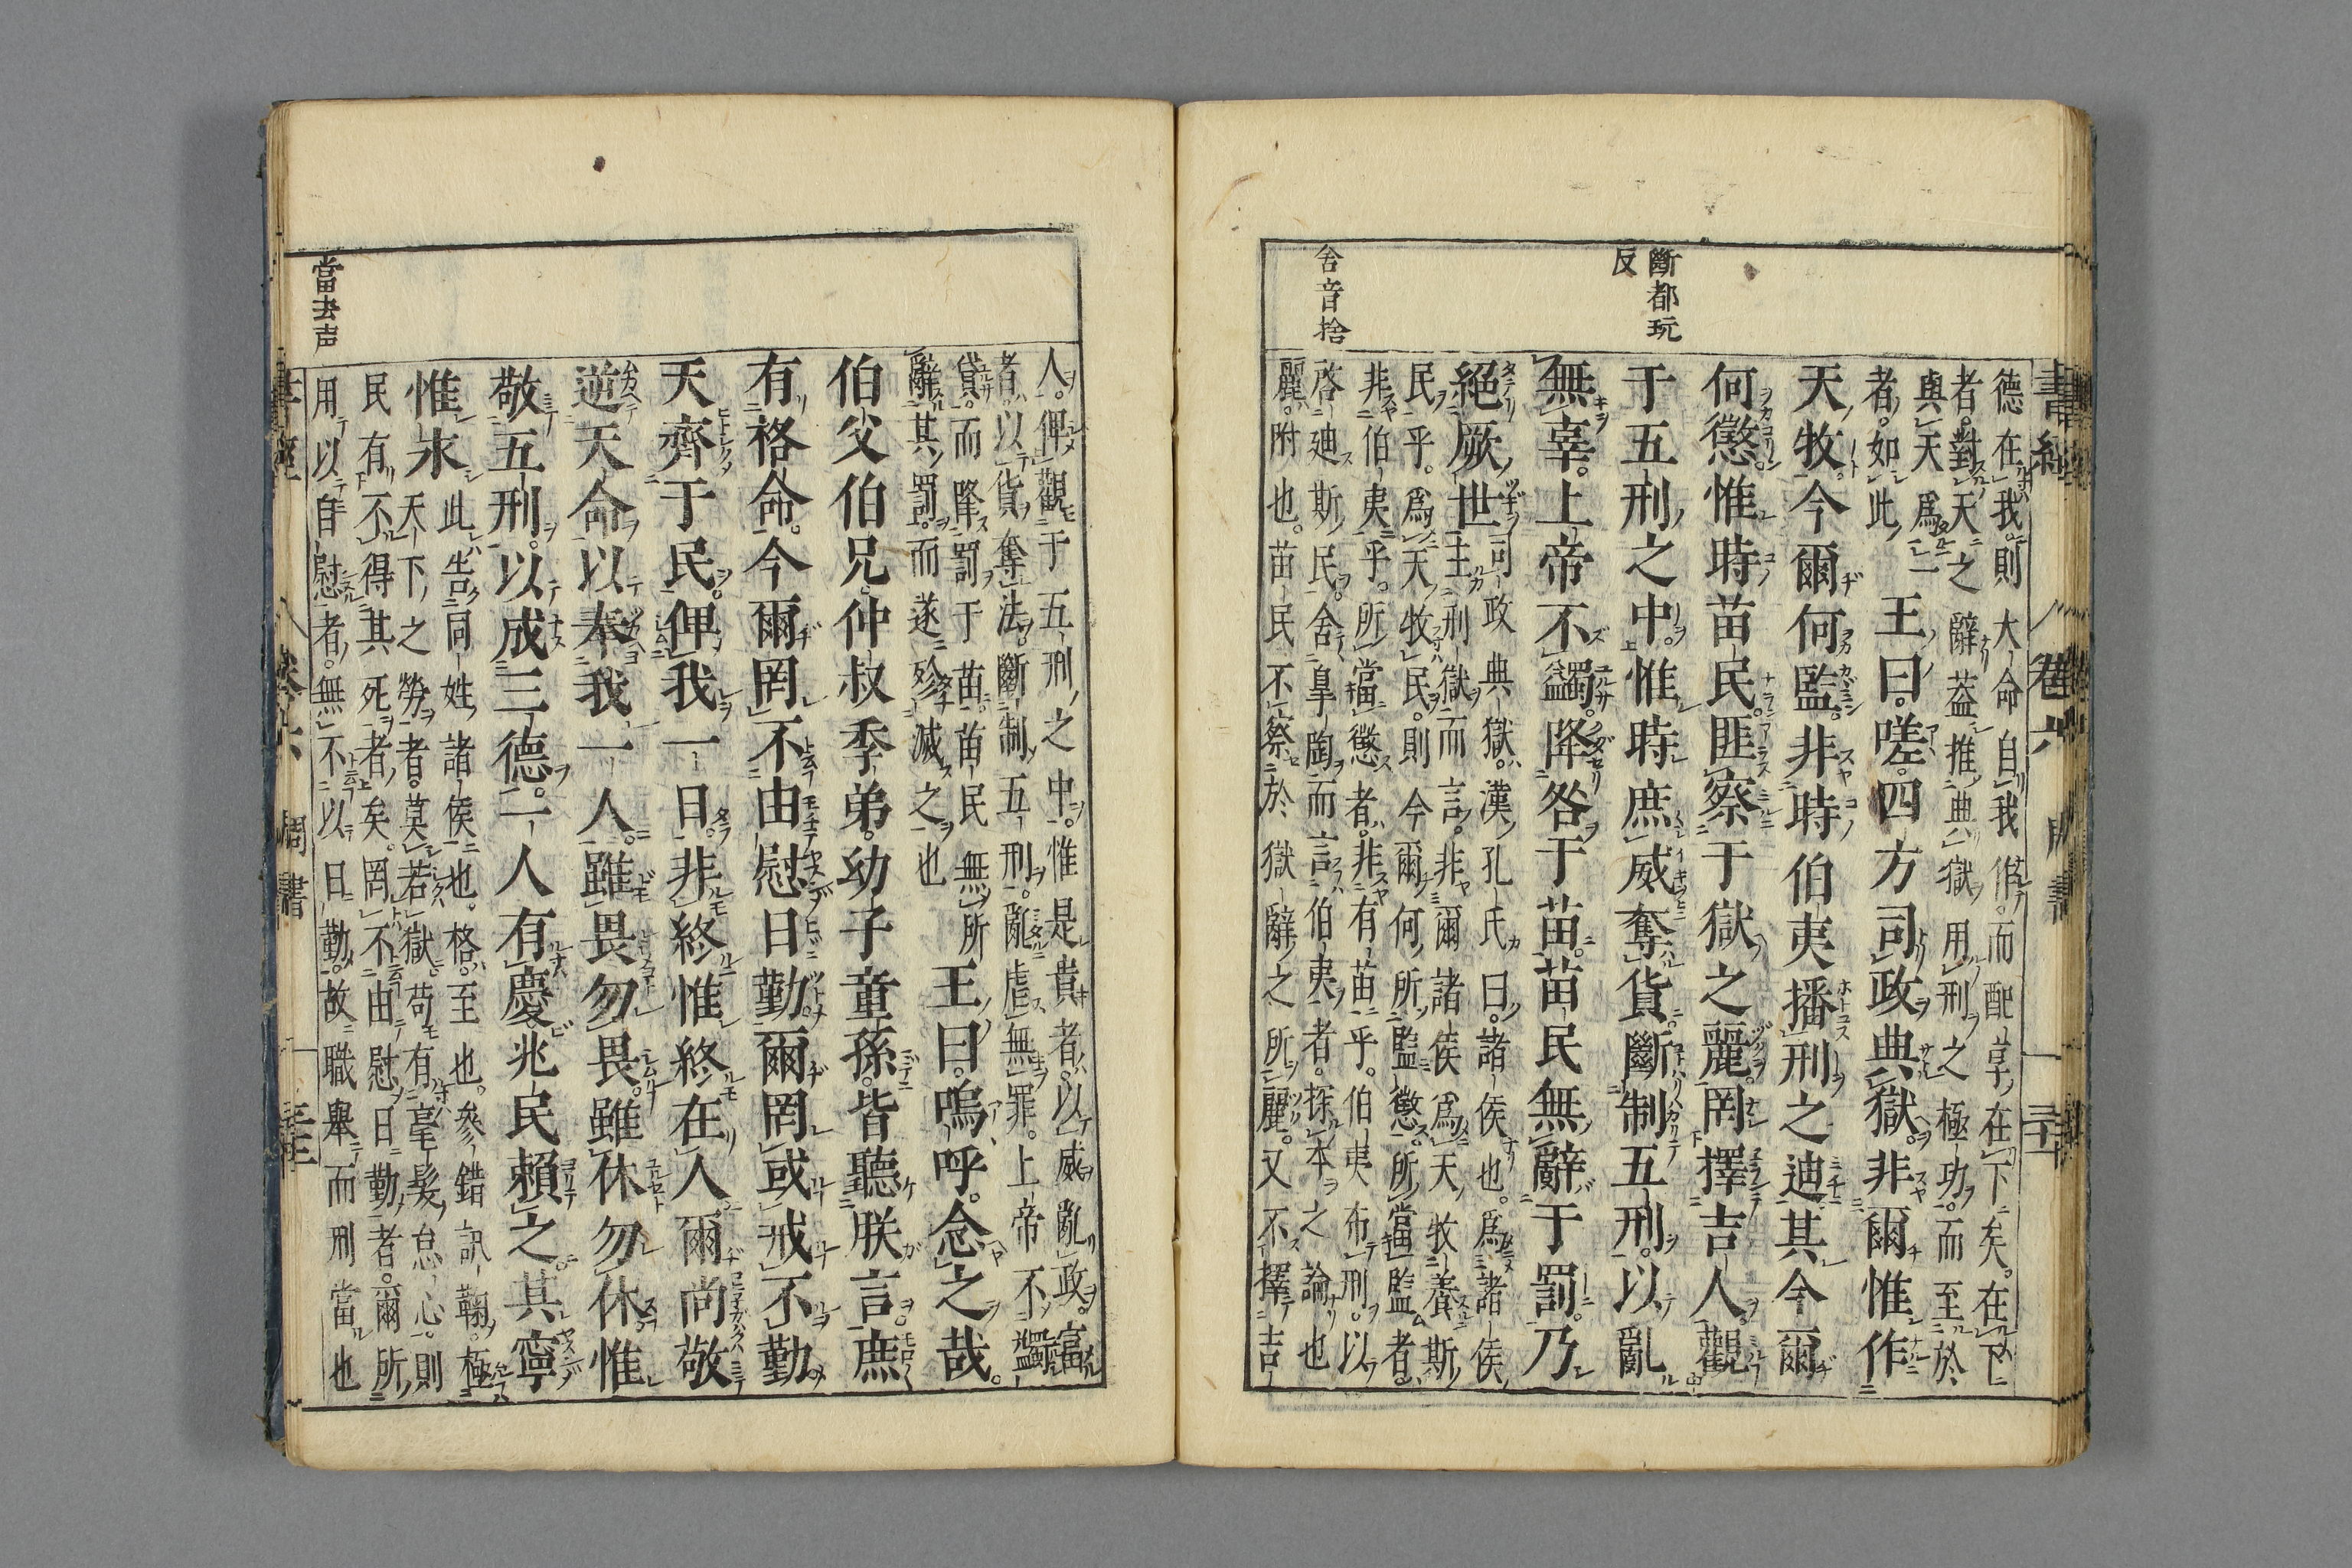 斷都玩
反
舍音捨
德在我。則大命自我作。而配享在下矣。在下
者。對天之辭。蓋推典獄用刑之極功。而至於
與天爲一
者。如此
王曰。嗟。四方司政典獄。非爾惟作
天牧。今爾何監。非時伯夷播刑之迪。其今爾
何懲。惟時苗民。匪察于獄之麗。罔擇吉人。觀
于五刑之中。惟時庶威奪貨。斷制五刑。以亂
無辜。上帝不蠲。降咎于苗。苗民無辭于罰。乃
絕厥世
司政典獄。漢孔氏曰。諸侯也。爲諸侯
主刑獄而言。非爾諸侯爲天牧養斯
民乎。爲天牧民。則今爾何所監懲。所當監者。
非伯夷乎。所當懲者。非有苗乎。伯夷布刑。以
啓迪斯民。舍皐陶而言伯夷者。探本之論也
麗。附也。苗民不察於獄辭之所麗。又不擇吉
書經 卷六 周書
當去声
人。俾觀于五刑之中。惟是貴者。以威亂政。富
者。以貨奪法。斷制五刑。亂虐無罪。上帝不蠲
貸。而降罰于苗。苗民無所
辭其罰。而遂殄滅之也
王曰。嗚呼。念之哉。
伯父伯兄。仲叔季弟。幼子童孫。皆聽朕言。庶
有格命。今爾罔不由慰日勤。爾罔或戒不勤
天齊于民。俾我一日。非終惟終在人。爾尚敬
逆天命。以奉我一人。雖畏勿畏。雖休勿休。惟
敬五刑。以成三德。一人有慶。兆民賴之。其寧
惟永
此告同姓諸侯也。格。至也。參錯訊鞠。極
天下之勞者。莫若獄。苟有毫髮怠心。則
民有不得其死者矣。罔不由慰日勤者。爾所
用以自慰者。無不以日勤。故職舉而刑當也
書經 卷六 周書